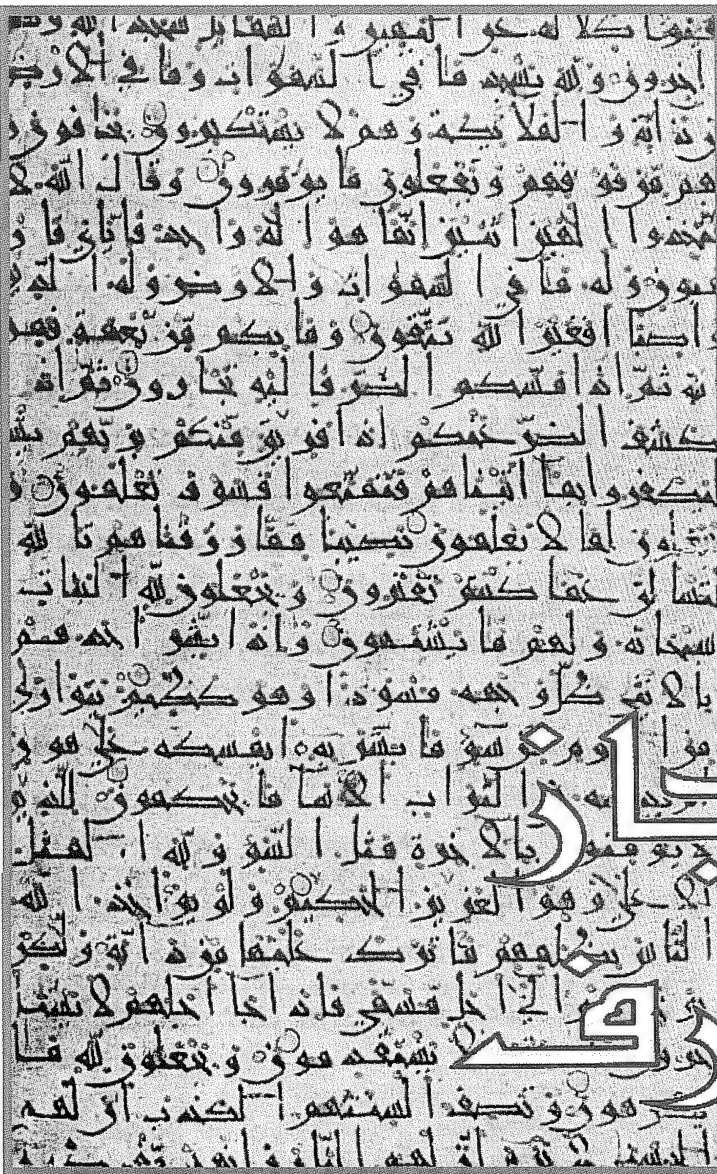 ظلله عن اليمين والشمائل سجدا لله وهم
داخرون ولله يسجد ما في السموات وما في الأرض
من دابة والملائكة وهم لا يستكبرون يخافون ر
بهم من فوقهم ويفعلون ما يؤمرون وقال الله لا
تتخذوا إلهين اثنين إنما هو إله واحد فإياي فا ر
هبون وله ما في السموات والأرض وله الدين
واصبا أفغير الله تتقون وما بكم من نعمة فمن
الله ثم إذا مسكم الضر فإليه تجأرون ثم إذا
كشف الضر عنكم إذا فريق منكم بربهم يشر
ليكفروا بما آتيناهم فتمتعوا فسوف تعلمون و
يجعلون لما لا يعلمون نصيبا مما رزقناهم تالله
لتسألن عما كنتم تفترون ويجعلون لله البنات
سبحانه ولهم ما يشتهون وإذا بشر أحدهم
بالأنثى ظل وجهه مسودا وهو كظيم يتوارى
من القوم من سوء ما بشر به أيمسكه على هون
يدسه التراب ألا ساء ما يحكمون للذين
لا يؤمنون بالآخرة مثل السوء ولله المثل
الأعلى وهو العزيز الحكيم ولو يؤاخذ الله
الناس بظلمهم ما ترك عليها من دابة ولكن
إلى أجل مسمى فإذا جاء أجلهم لا يستأ
خرون يستقدمون ويجعلون لله ما
يكرهون وتصف ألسنتهم الكذب أن لهم
الحسنى لا جرم أن لهم النار وأنهم